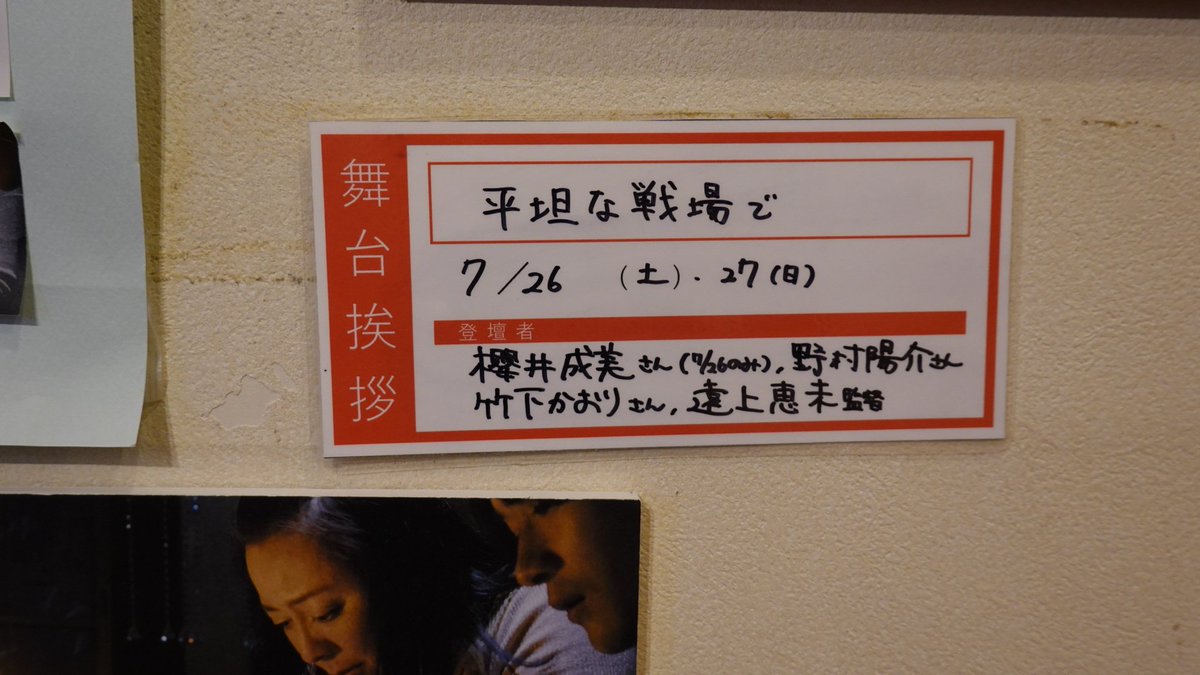 舞台挨拶
平坦な戦場で
7/26 (土)・27(日)
登壇者
櫻井成美さん(7/26のみ),野村陽介さん
竹下かおりさん,遠上恵未監督